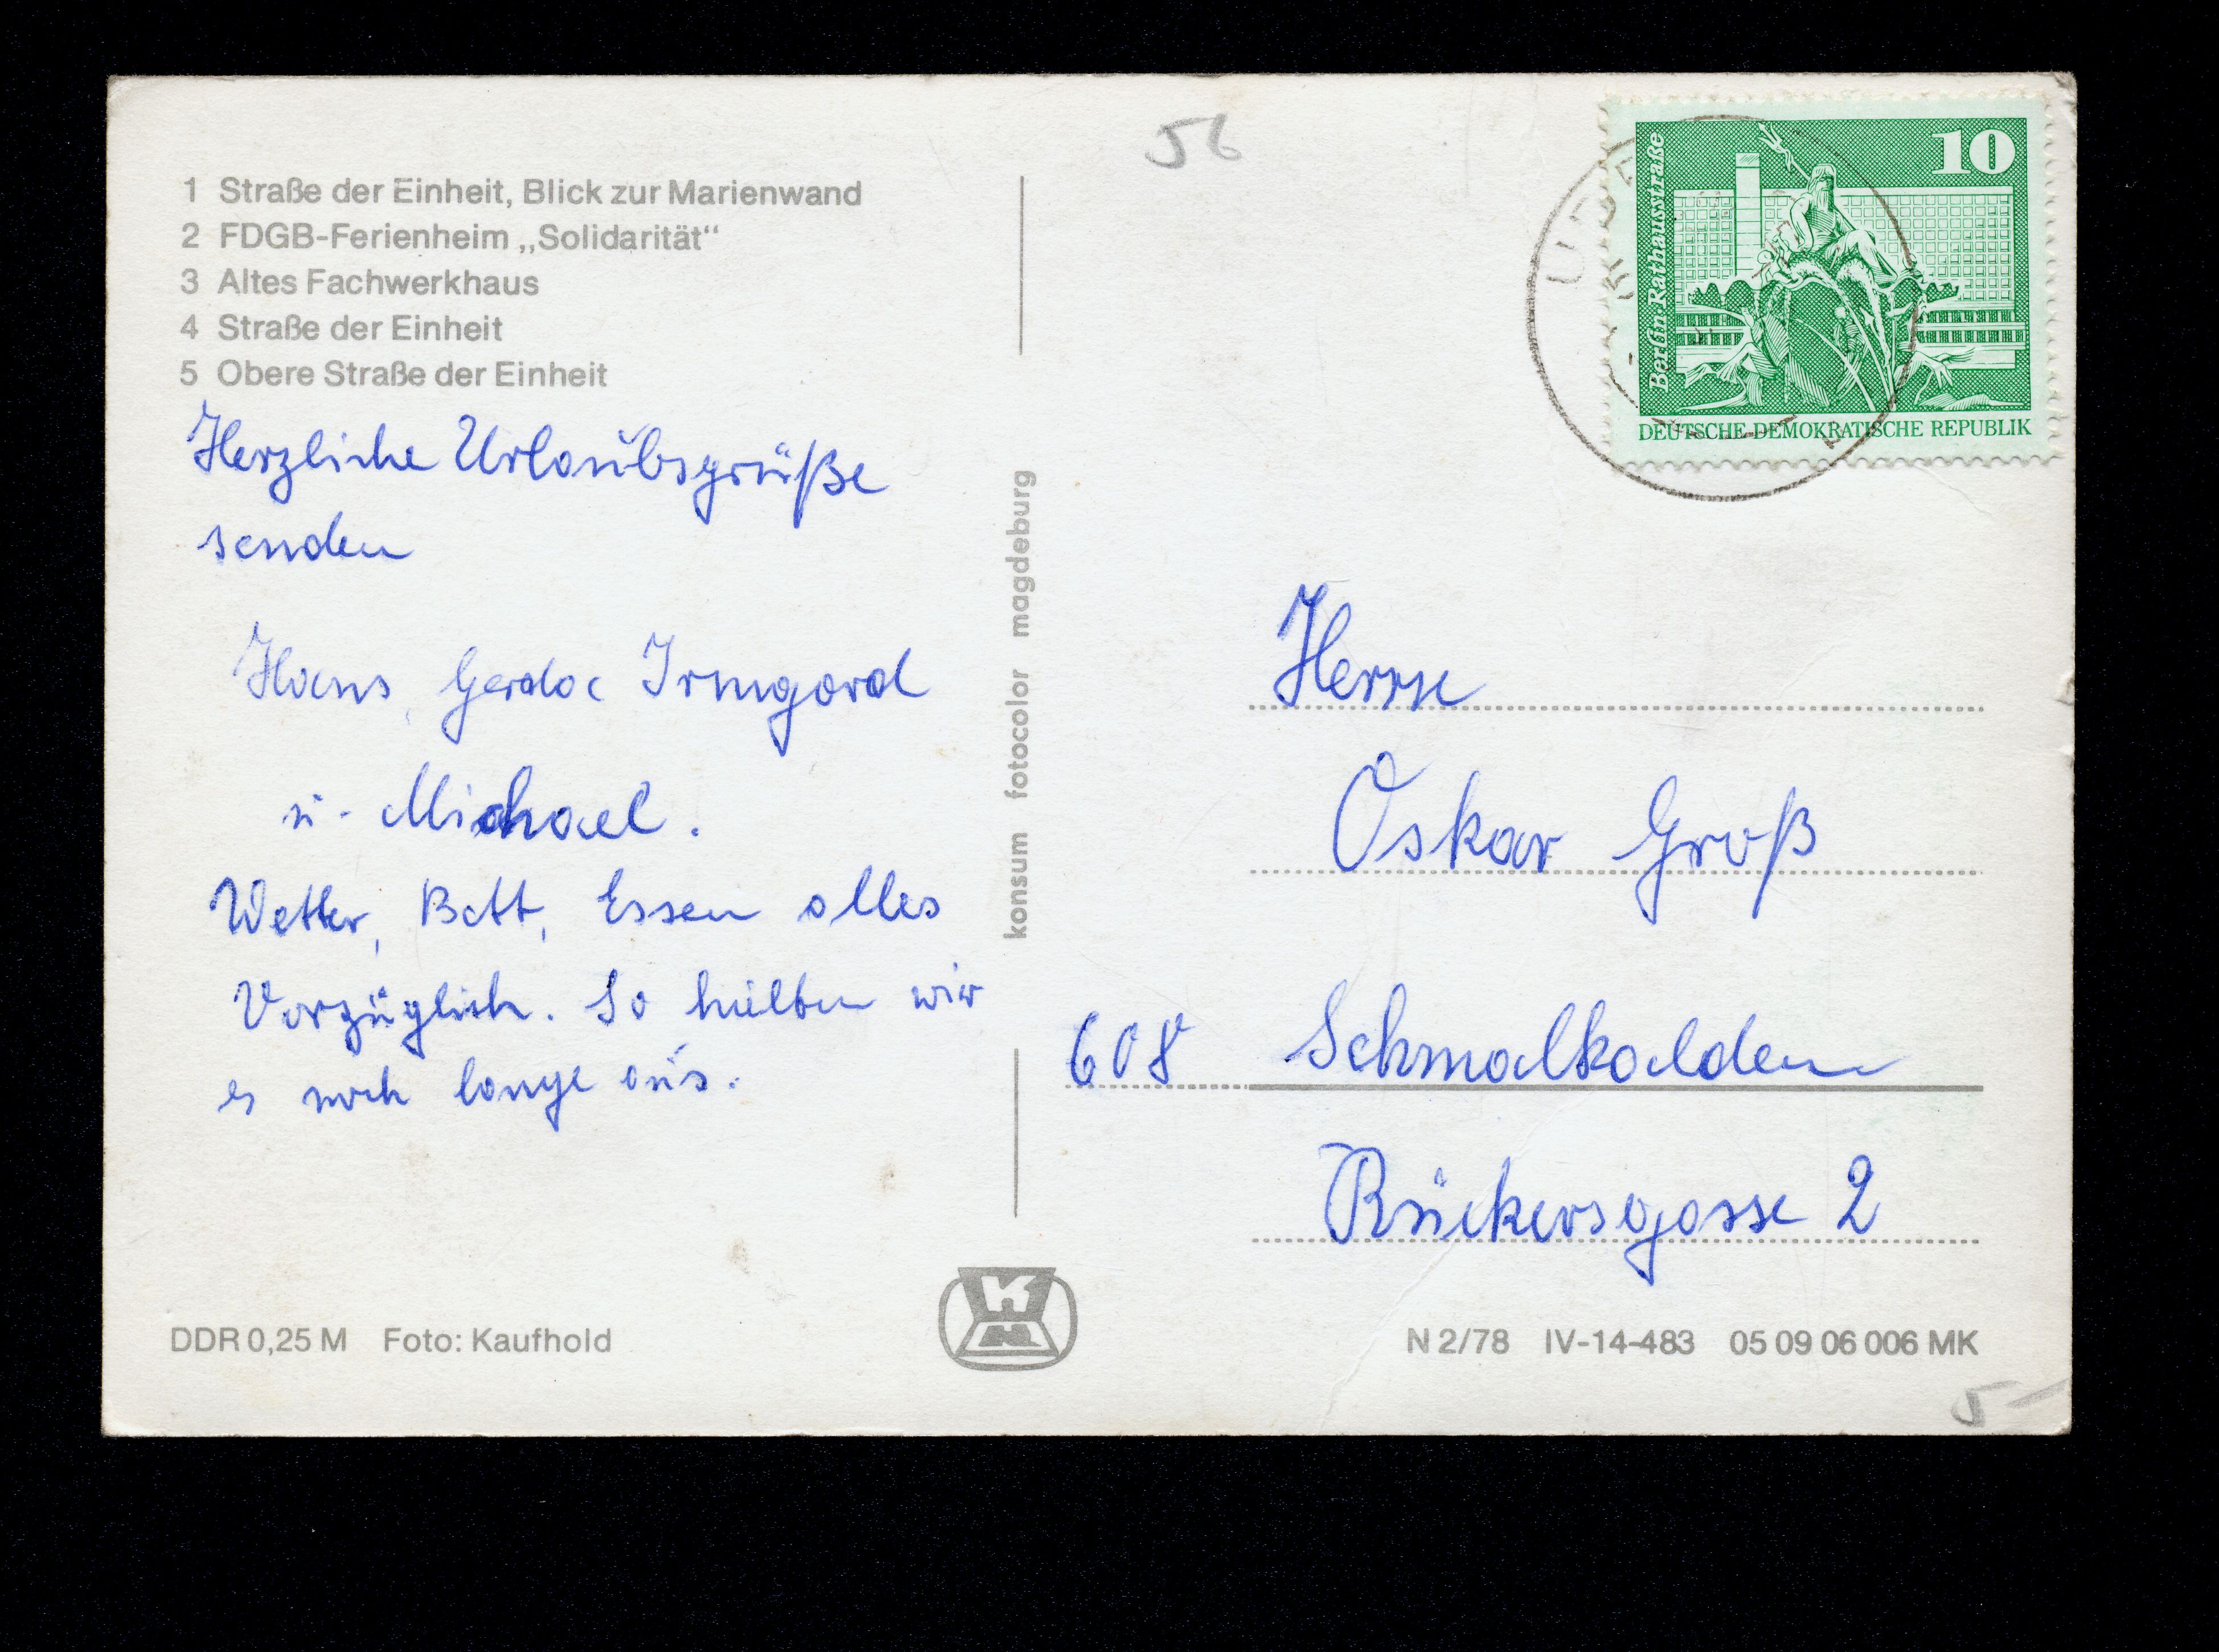 1 Straße der Einheit, Blick zur Marienwand
2 FDGB-Ferienheim „Solidarität“
3 Altes Fachwerkhaus
4 Straße der Einheit
5 Obere Straße der Einheit
Herzliche Urlaubsgrüße
senden
Hans, Gerda Irmgard
u. Michael.
Wetter, Bett, Essen alles
Vorzüglich. So hielten wir
es noch lange aus.
DDR 0,25 M Foto: Kaufhold
konsum fotocolor magdeburg
56
10
Berlin-Rathausstraße
DEUTSCHE DEMOKRATISCHE REPUBLIK
Herrn
Oskar Groß
608 Schmalkalden
Rückersgasse 2
N 2/78 IV-14-483 05 09 06 006 MK
5-